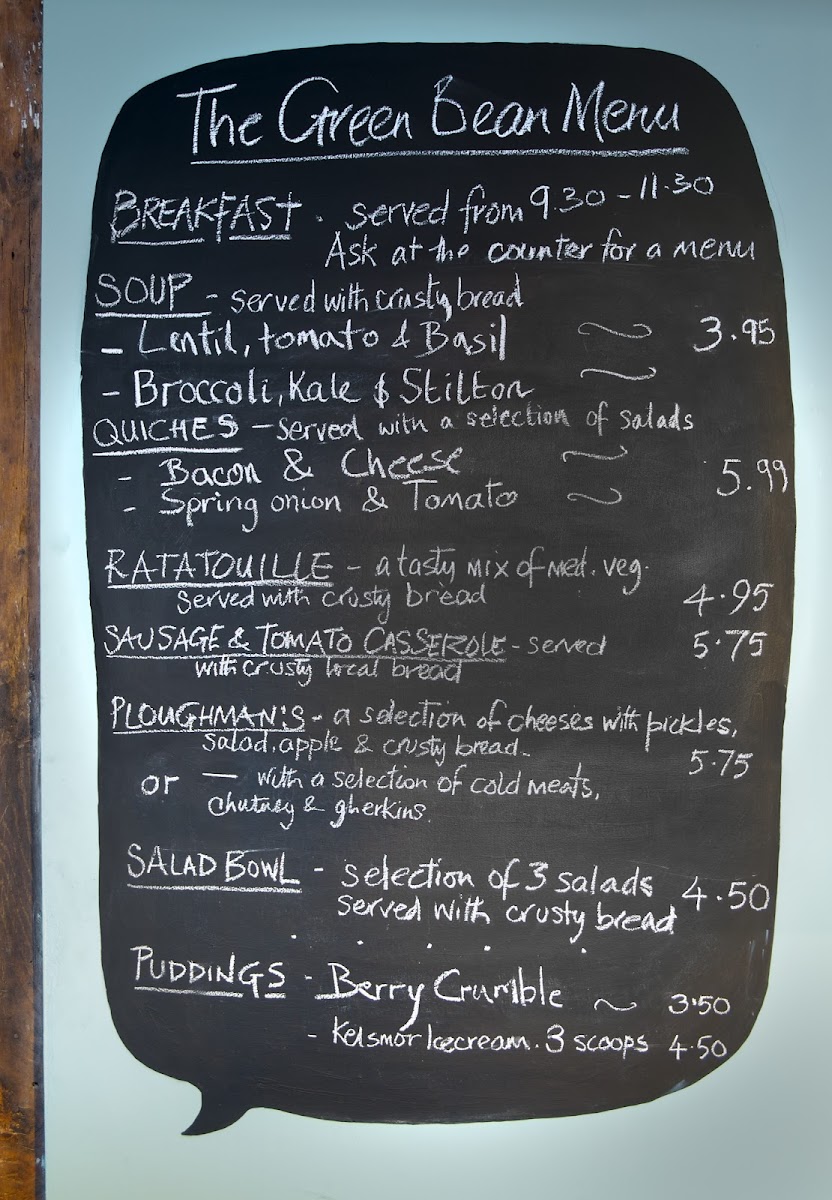 The Green Bean Menu
BREAKFAST . served from 9.30 - 11.30
Ask at the counter for a menu
SOUP - served with crusty bread
- Lentil, tomato & Basil ~ 3.95
- Broccoli, Kale & Stilton ~
QUICHES - served with a selection of salads
- Bacon & Cheese ~ 5.99
- Spring onion & Tomato ~
RATATOUILLE - a tasty mix of med. veg.
served with crusty bread 4.95
SAUSAGE & TOMATO CASSEROLE - served 5.75
with crusty local bread
PLOUGHMAN'S - a selection of cheeses with pickles,
salad, apple & crusty bread. 5.75
or — with a selection of cold meats,
chutney & gherkins.
SALAD BOWL - selection of 3 salads 4.50
served with crusty bread
PUDDINGS - Berry Crumble ~ 3.50
- Kelsmor Icecream. 3 scoops 4.50